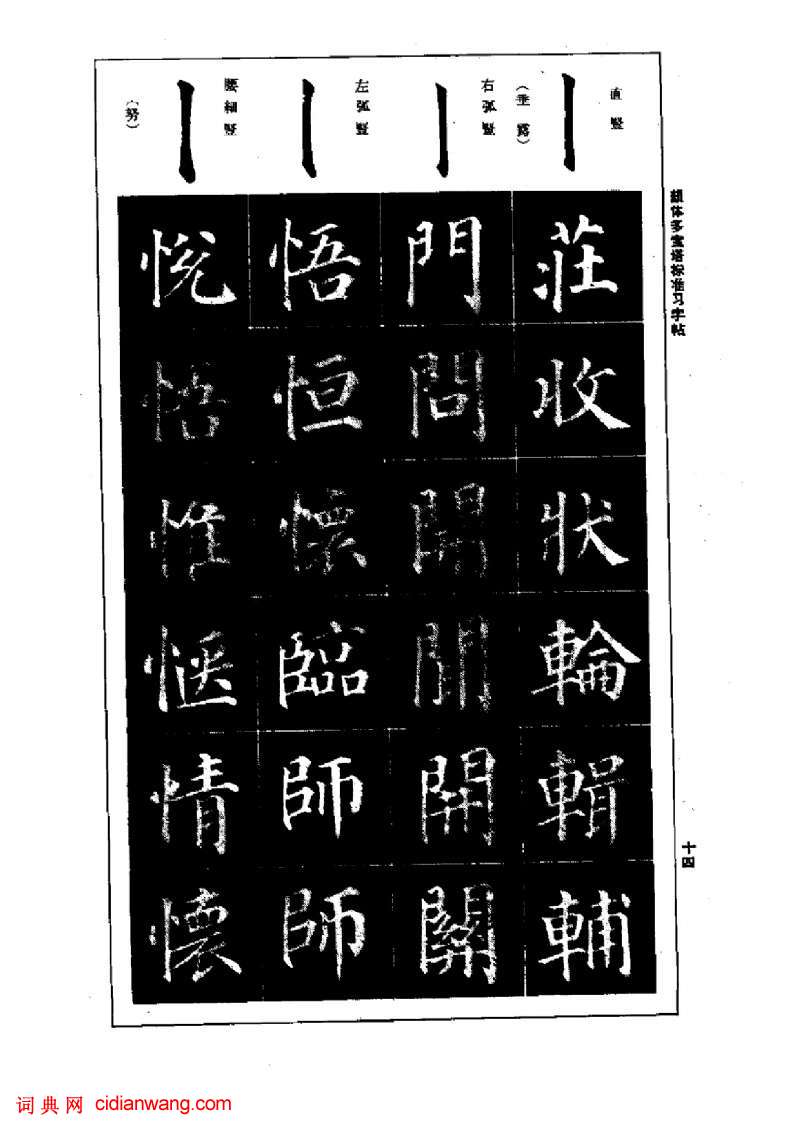 颜体多宝塔标准习字帖
十四
直竖
(垂露)
右弧竖
左弧竖
腰细竖
(努)
莊收狀輪輯輔
門問開開開關
悟恒懷臨師師
悅悟惟愜情懷
词典网 cidianwang.com